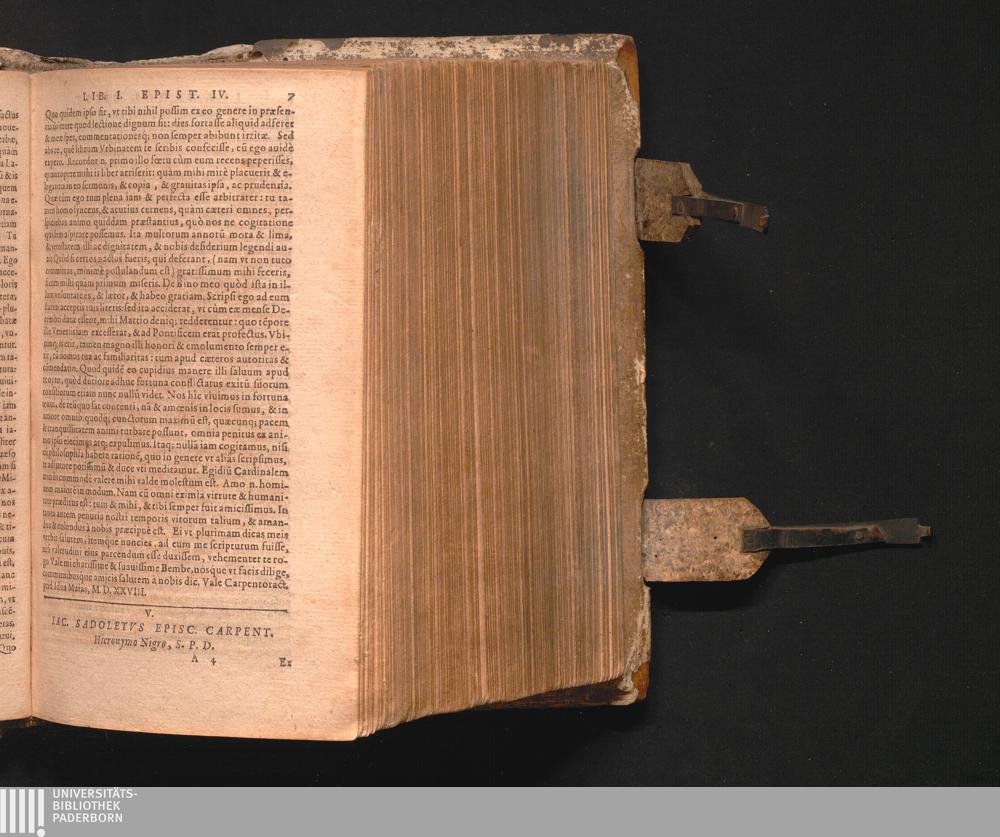 LIB. I. EPIST. IV. 7
Quo quidem ipso fit, vt tibi nihil possim ex eo genere in præsen-
mittere quod lectione dignum sit: dies fortasse aliquid adferet
& mea spes, commentationesq; non semper abibunt irritæ. Sed
abs te, quē librum Vrbinatem te scribis confecisse, cū ego auidè
expeto. Recordor n. primo illo fœtu cùm eum recens peperisses,
quantopere mihi is liber arriserit: quàm mihi mirè placuerit & e-
legantia in eo sermonis, & copia, & grauitas ipsa, ac prudentia.
Quæ cùm ego tum plena iam & perfecta esse arbitrarer: tu ta-
men homo lynceus, & acutius cernens, quàm cæteri omnes, per-
spiciebas animo quiddam præstantius, quò nos ne cogitatione
quidem aspirare possemus. Ita multorum annorū mora & lima,
& venustatem illi ac dignitatem, & nobis desiderium legendi au-
xit. Quòd si certos nactus fueris, qui deferant, (nam vt non tuto
committas, minimè postulandum est) gratissimum mihi feceris,
si eum misi quàm primum miseris. De Bino meo quòd ista in il-
lum voluntate es, & lætor, & habeo gratiam. Scripsi ego ad eum
statim acceptis tuis literis: sed ita acciderat, vt cùm ex mense De-
cembri datæ essent, mihi Martio deniq; redderentur: quo tēpore
ille Venetiis iam excesserat, & ad Pontificem erat profectus. Vbi-
cunq; is erit, tamen magno illi honori & emolumento semper e-
rit, tū domus tua ac familiaritas: tum apud cæteros autoritas &
cōmendatio. Quod quidē eo cupidius manere illi saluum apud
te opto, quòd duriore adhuc fortuna conflictatus exitū suorum
consiliorum etiam nunc nullū videt. Nos hîc viuimus in fortuna
tenui, de reliquo sat contenti, nā & amœnis in locis sumus, & in
amore omnib. quodq; cunctorum maximū est, quæcunq; pacem
& tranquillitatem animi turbare possunt, omnia penitus ex ani-
mo ipso eiecimus atq; expulimus. Itaq; nullā iam cogitamus, nisi
cū philosophia habere rationē, quo in genere vt alias scripsimus,
te adiutore potissimū & duce vti meditamur. Egidiū Cardinalem
minus commode valere mihi valde molestum est. Amo n. homi-
nem maiorē in modum. Nam cū omni eximia virtute & humani-
tate præditus est: tum & mihi, & tibi semper fuit amicissimus. In
tanta autem penuria nostri temporis virorum talium, & aman-
dus & colendus à nobis præcipuè est. Ei vt plurimam dicas meis
verbis salutem, itemque nuncies, ad eum me scripturum fuisse,
nisi valetudini eius parcendum esse duxissem, vehementer te ro-
go. Vale mi charissime & suauissime Bembe, nosque vt facis dilige,
communibusque amicis salutem à nobis dic. Vale Carpentoract.
prid. Idus Maias, M. D. XXVIII.
V.
IAC. SADOLETVS EPISC. CARPENT.
Hieronymo Nigro, S. P. D.
A 4 Ex
UNIVERSITÄTS-
BIBLIOTHEK
PADERBORN